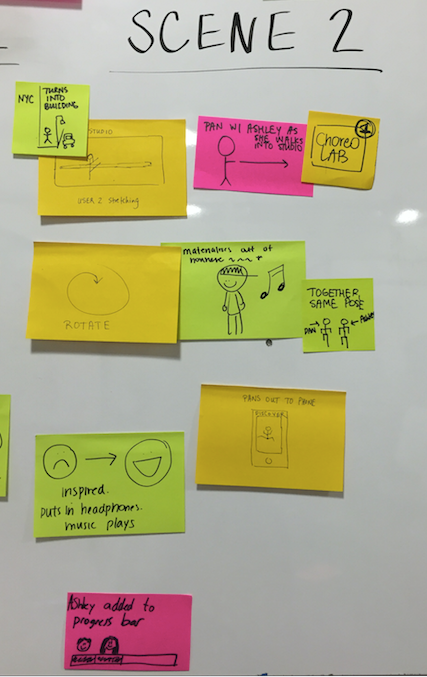 SCENE 2
NYC
TURNS
INTO
BUILDING
STUDIO
USER 2 stretching
PAN W/ ASHLEY AS
SHE WALKS
INTO STUDIO
Choreo
LAB
ROTATE
materializes out of
nowhere
TOGETHER,
SAME POSE
DAN
PANS OUT TO PHONE
inspired.
puts in headphones.
music plays
Ashley added to
progress bar